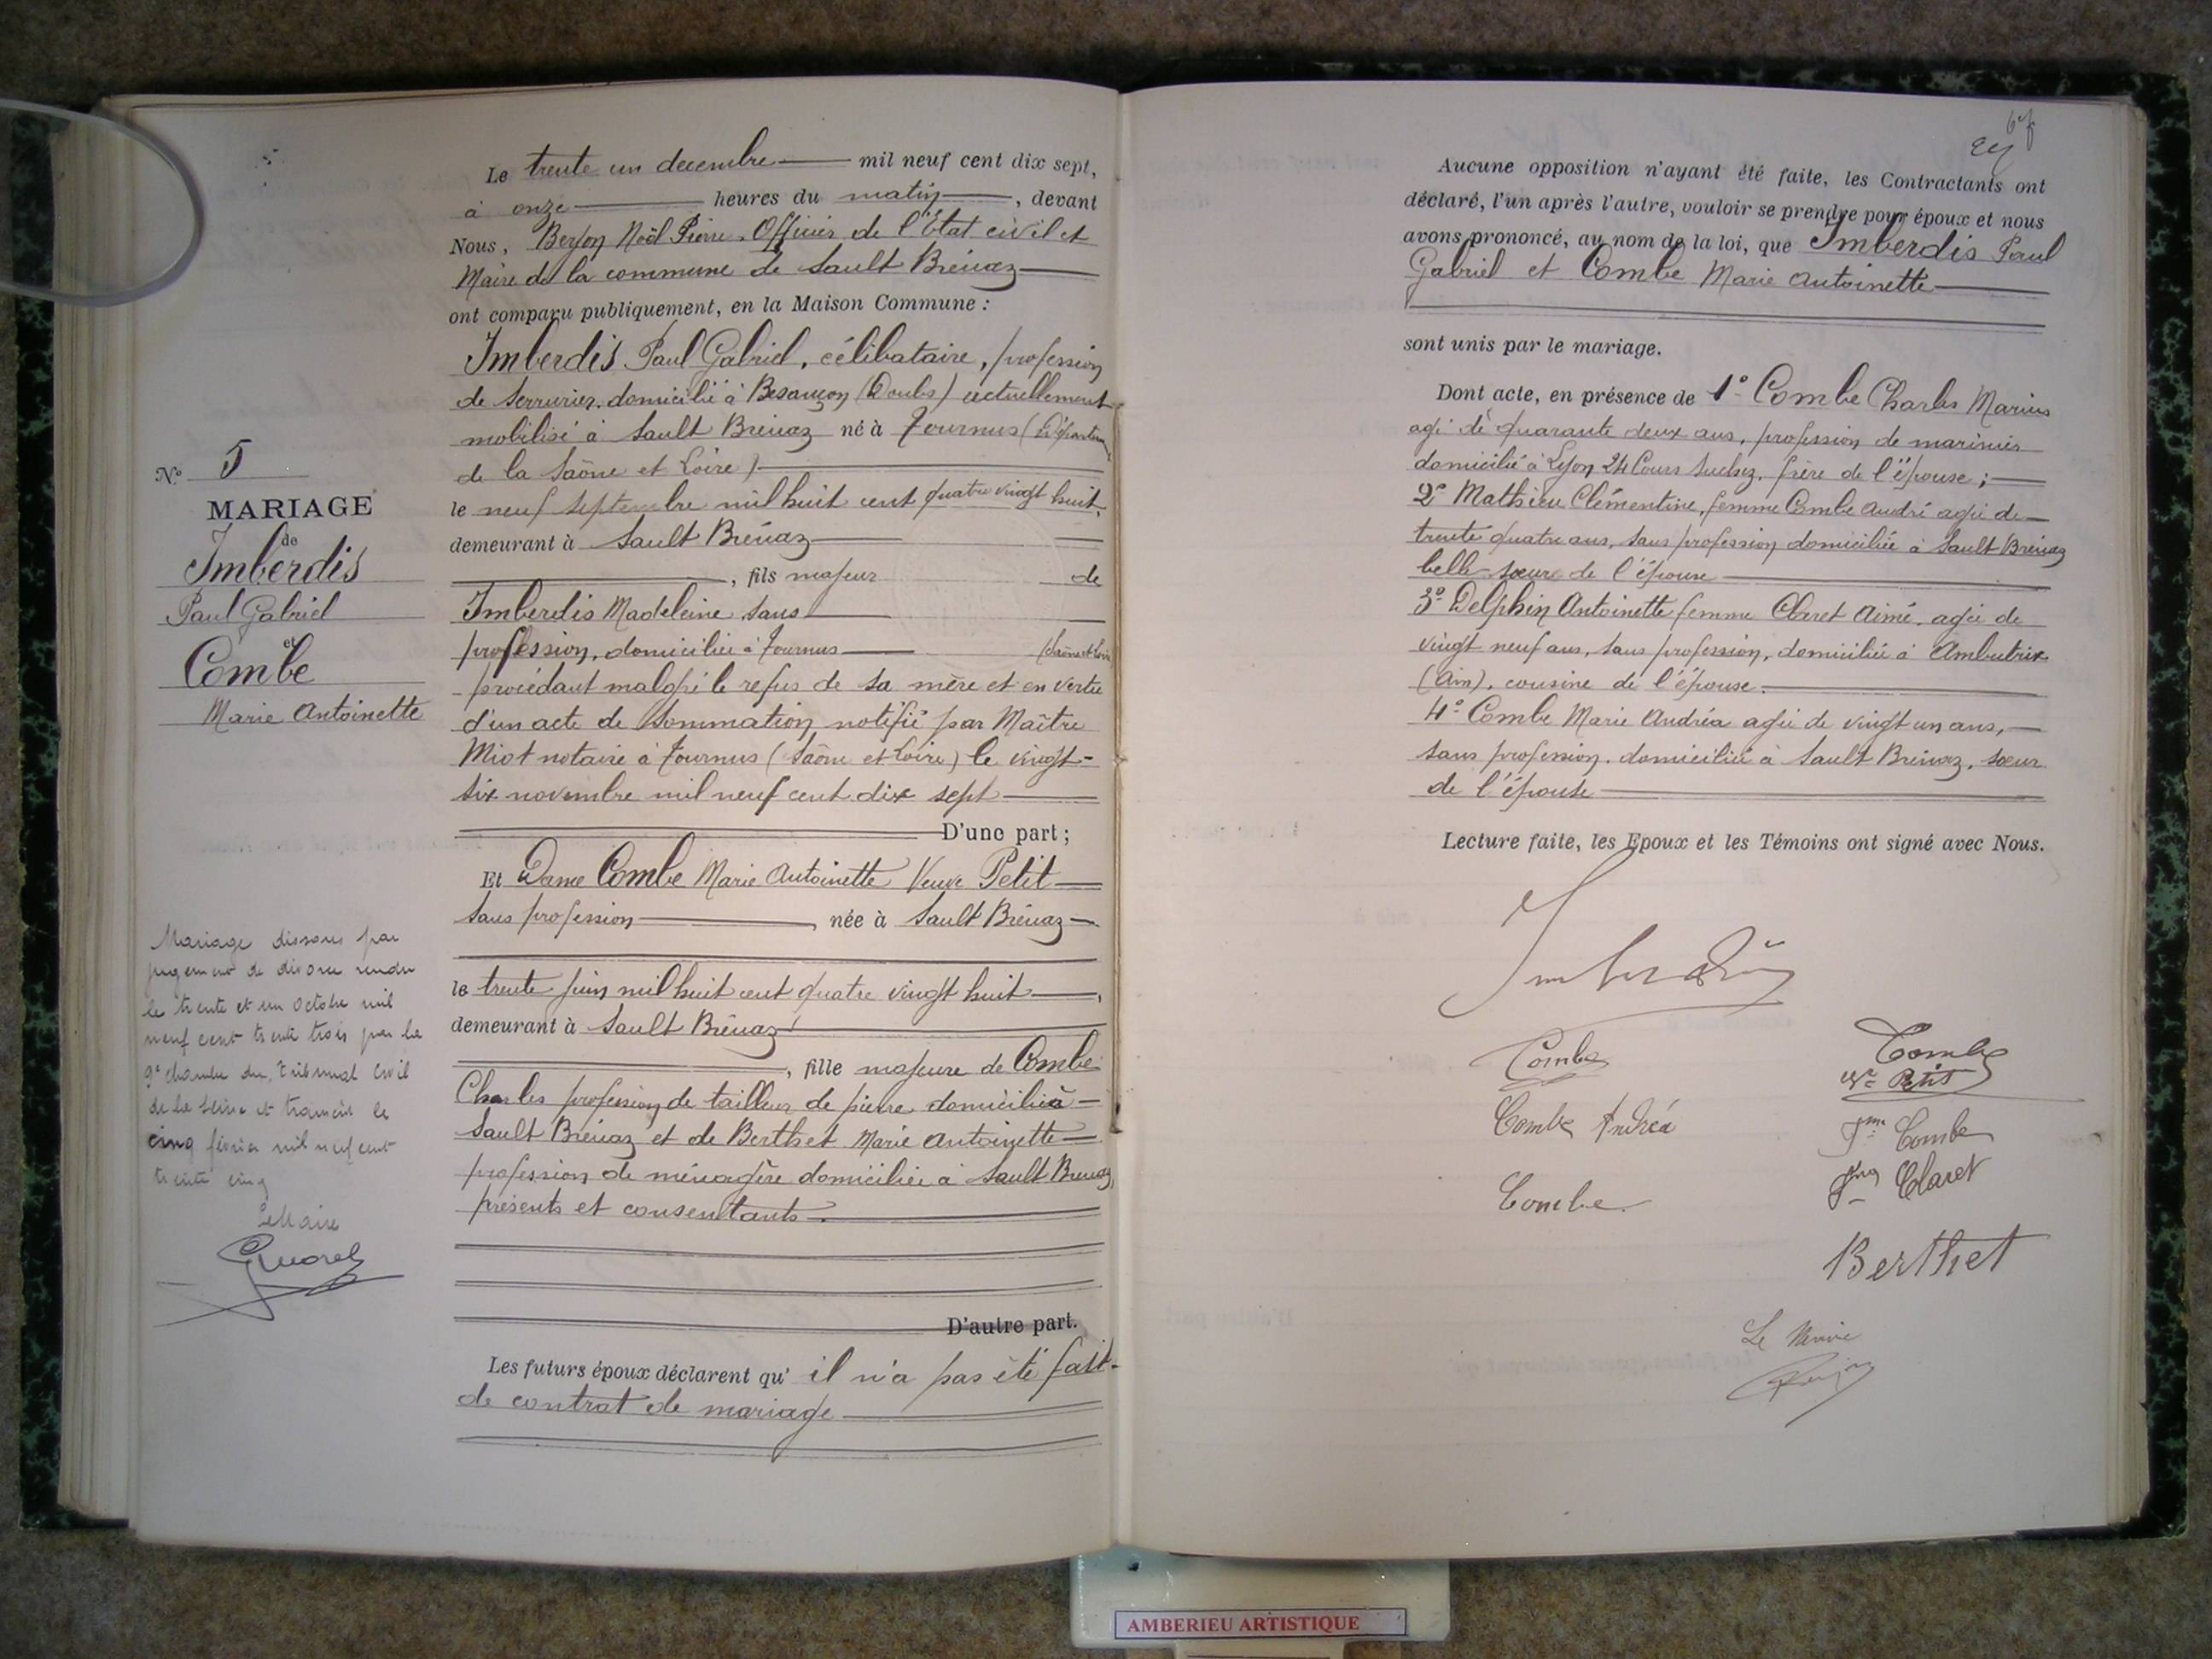 Le trente un decembre mil neuf cent dix sept,
à onze heures du matin, devant
Nous, Berjon Noël Pierre, Officier de l'Etat civil et
Maire de la commune de Sault Brénaz
ont comparu publiquement, en la Maison Commune :
Imberdis Paul Gabriel, célibataire, profession
de serrurier, domicilié à Besançon (Doubs) actuellement
mobilisé à Sault Brénaz né à Tournus (Département
de la Saône et Loire)
le neuf septembre mil huit cent quatre vingt huit,
demeurant à Sault Brénaz
, fils majeur de
Imberdis Madeleine, sans
profession, domiciliée à Tournus (Saône et Loire
procédant malgré le refus de sa mère et en vertu
d'un acte de sommation notifié par Maître
Miot notaire à Tournus (Saône et Loire) le vingt-
six novembre mil neuf cent dix sept
D'une part ;
Et Dame Combe Marie Antoinette Veuve Petit
sans profession, née à Sault Brénaz
le trente juin mil huit cent quatre vingt huit,
demeurant à Sault Brénaz
, fille majeure de Combe
Charles profession de tailleur de pierre domicilié à
Sault Brénaz et de Berthet Marie Antoinette
profession de ménagère domiciliée à Sault Brénaz,
présents et consentants.
D'autre part.
Les futurs époux déclarent qu' il n'a pas été fait
de contrat de mariage
N° 5
MARIAGE
de
Imberdis
Paul Gabriel
et
Combe
Marie Antoinette
Mariage dissous par
jugement de divorce rendu
le trente et un Octobre mil
neuf cent trente trois par la
9e chambre du Tribunal Civil
de la Seine et transcrit le
cinq février mil neuf cent
trente cinq
Le Maire
Aucune opposition n'ayant été faite, les Contractants ont
déclaré, l'un après l'autre, vouloir se prendre pour époux et nous
avons prononcé, au nom de la loi, que Imberdis Paul
Gabriel et Combe Marie Antoinette
sont unis par le mariage.
Dont acte, en présence de 1° Combe Charles Marius
agé de quarante deux ans, profession de marinier
domicilié à Lyon 24 Cours Suchez, frère de l'épouse ;
2° Mathieu Clémentine, femme Combe André agée de
trente quatre ans, sans profession domiciliée à Sault Brénaz
belle-sœur de l'épouse
3° Delphin Antoinette femme Claret Aimé, agée de
vingt neuf ans, sans profession, domiciliée à Ambutrix
(Ain), cousine de l'épouse.
4° Combe Marie Andréa agée de vingt un ans,
sans profession, domiciliée à Sault Brénaz, sœur
de l'épouse
Lecture faite, les Epoux et les Témoins ont signé avec Nous.
Imberdis
Combe
Combe
Vve Petit
Combe Andréa
Fme Combe
Fme Claret
Combe
Berthet
Le Maire
Berjon
AMBERIEU ARTISTIQUE